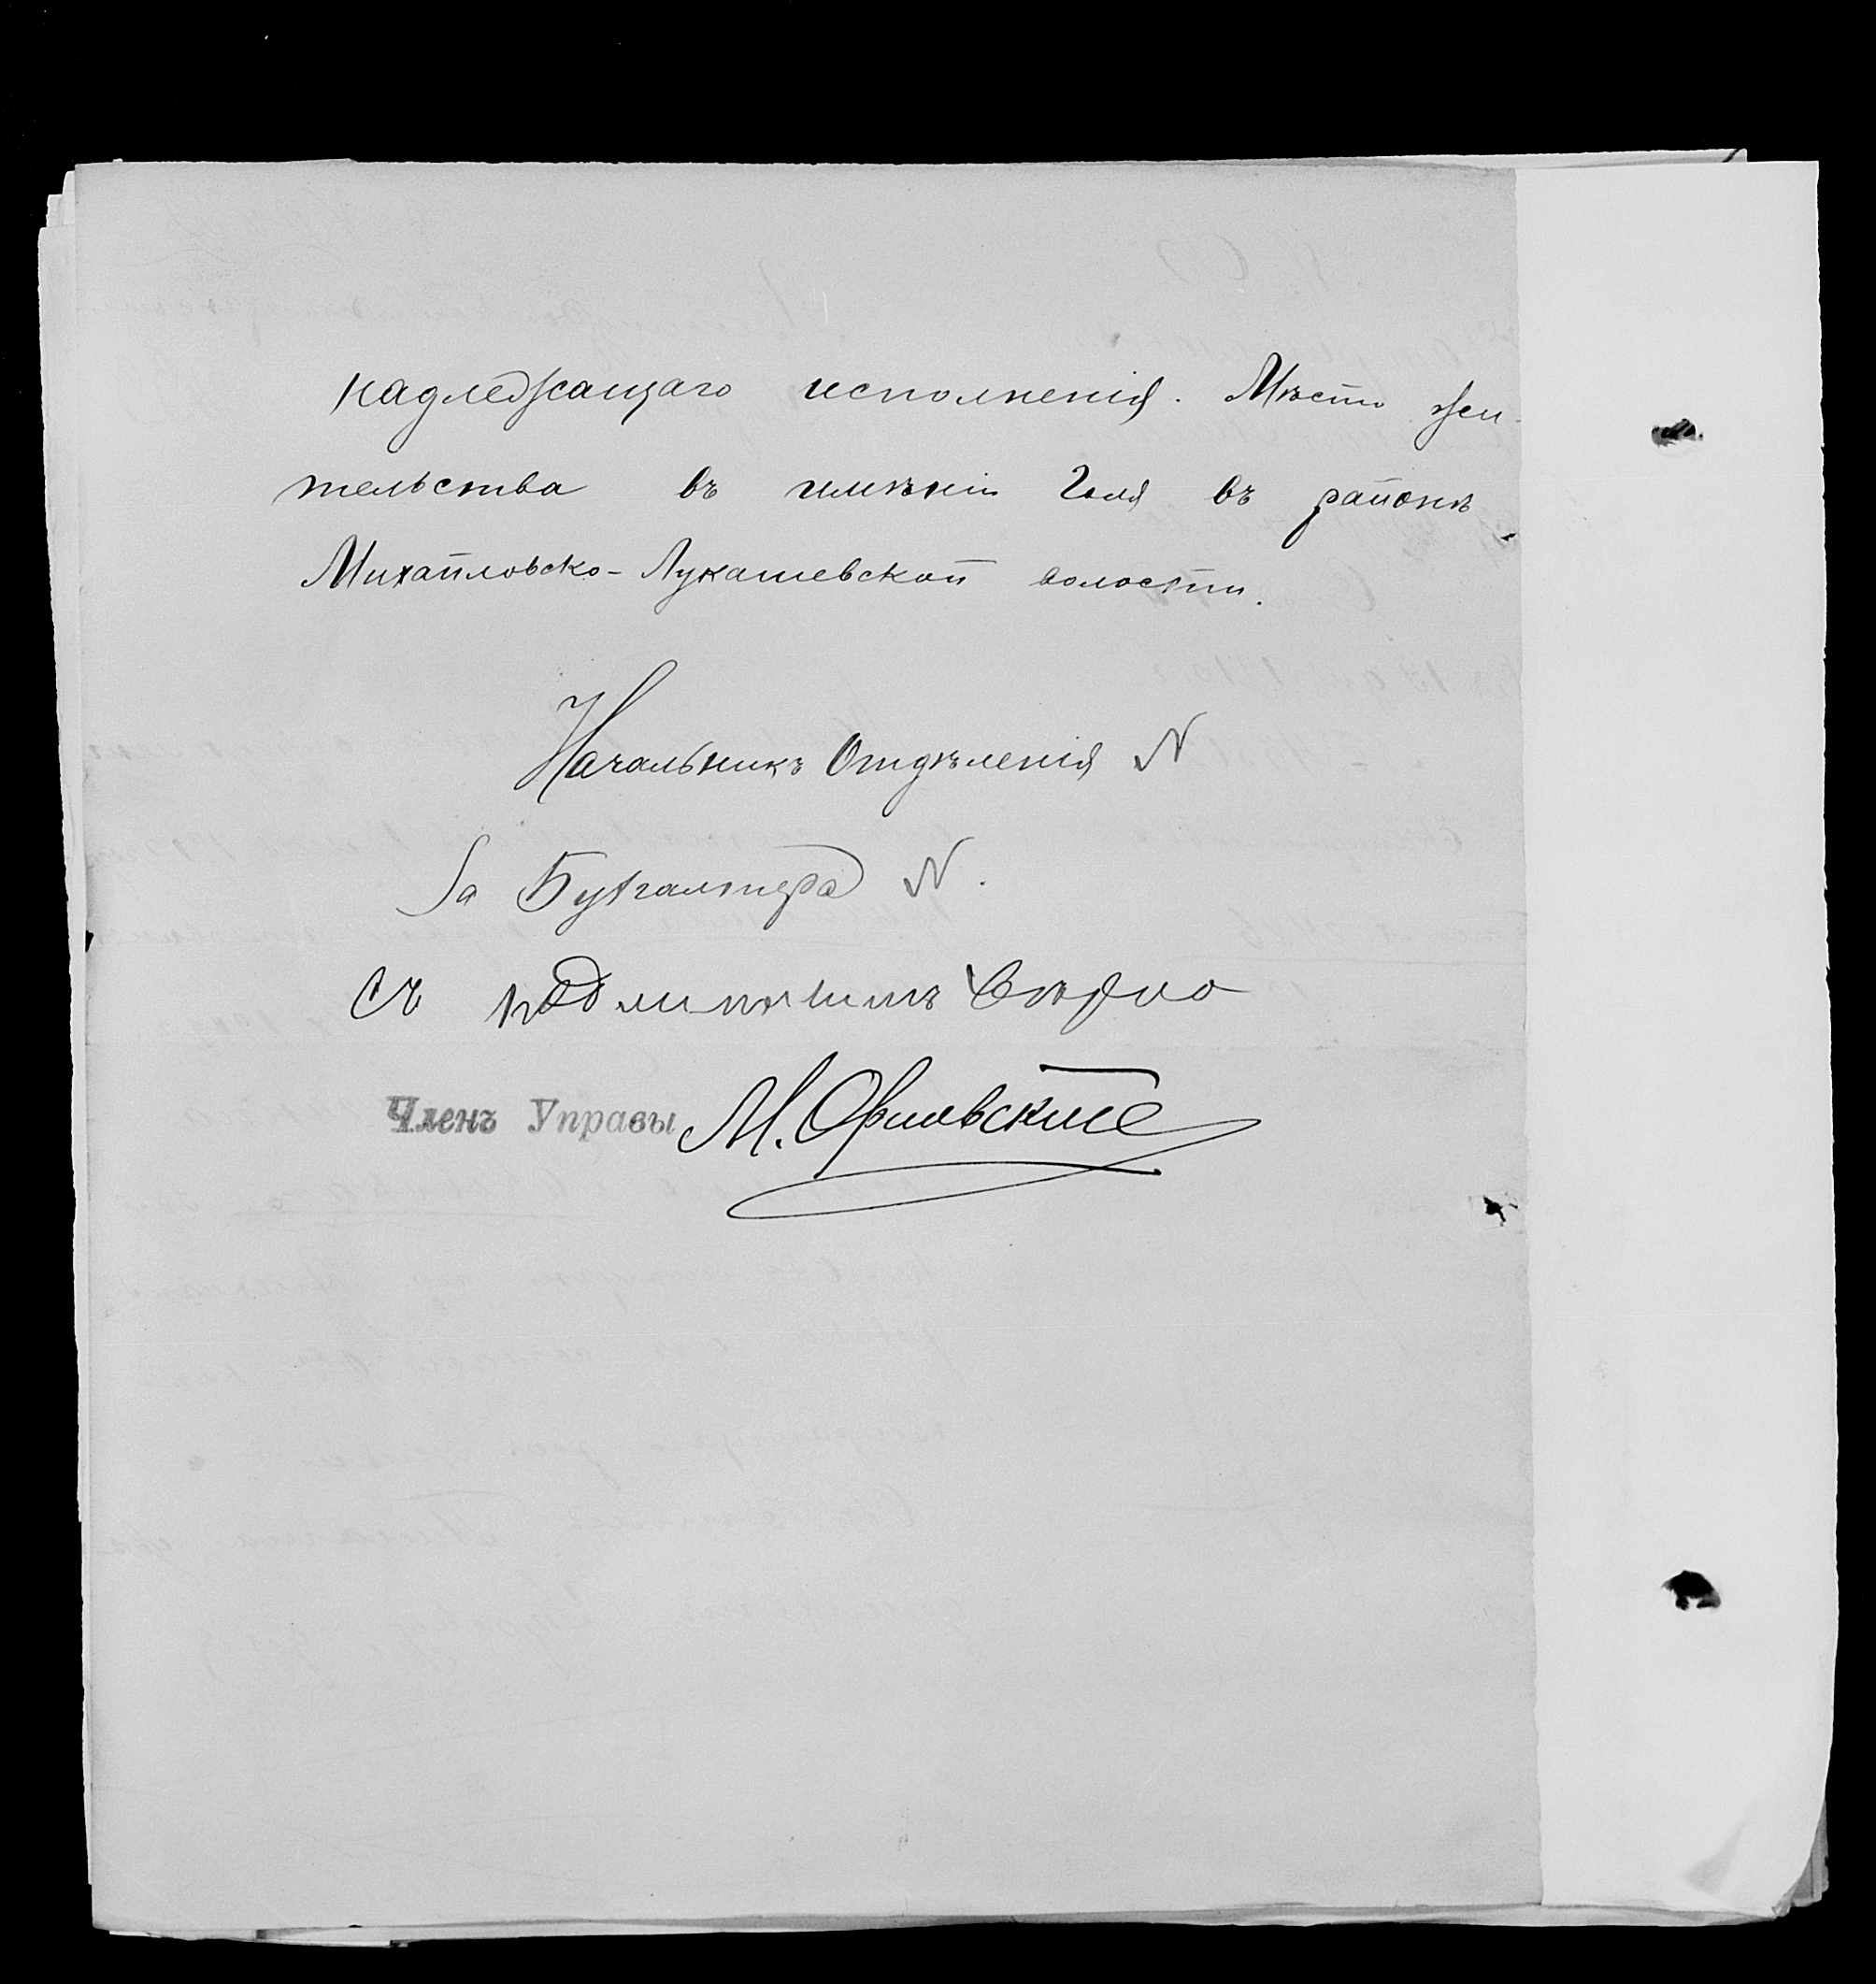 надлежащаго исполненія. Мѣсто жи-
тельства въ имѣніи Геля въ районѣ
Михайловско-Лукашевской волости.
Начальникъ Отдѣленія N
За Бухгалтера N.
Съ подлиннымъ вѣрно
Членъ Управы М. Орловскій